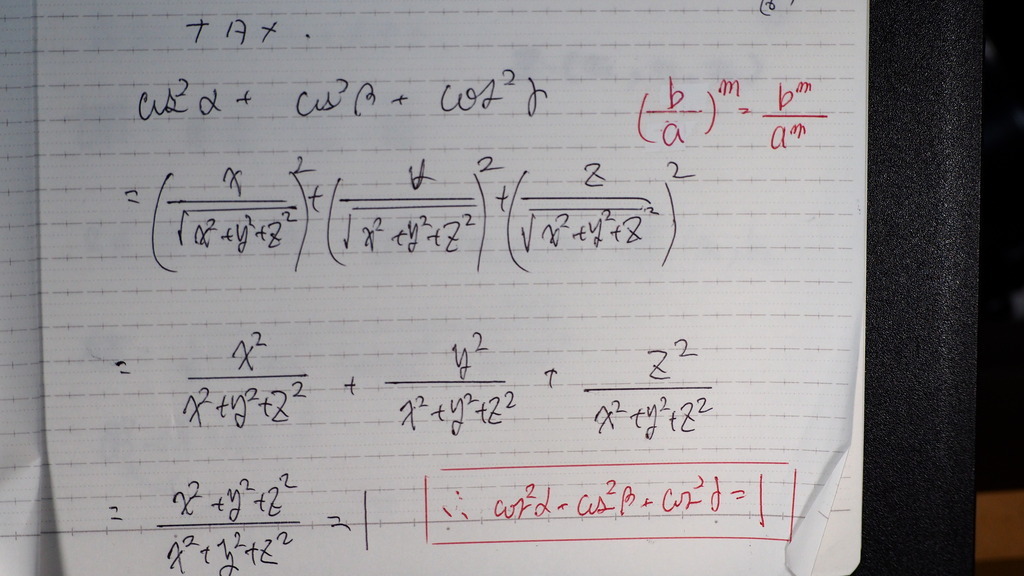 cos²α + cos²β + cos²γ
(b/a)^m = b^m/a^m
= (x/√(x²+y²+z²))² + (y/√(x²+y²+z²))² + (z/√(x²+y²+z²))²
= x²/(x²+y²+z²) + y²/(x²+y²+z²) + z²/(x²+y²+z²)
= (x²+y²+z²)/(x²+y²+z²) = 1
∴ cos²α + cos²β + cos²γ = 1